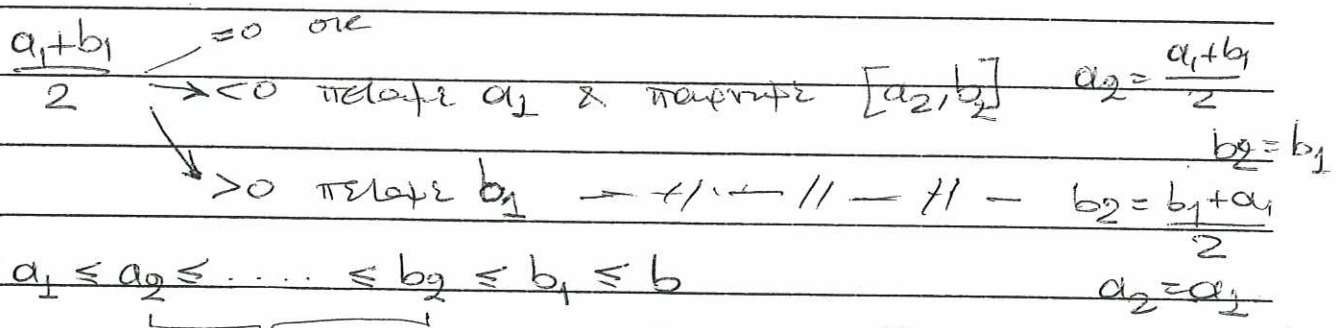 (a₁+b₁)/2 =0 οκ
→ <0 πετάμε a₁ & παίρνουμε [a₂,b₂] a₂=(a₁+b₁)/2
b₂=b₁
>0 πετάμε b₁ — // — // — // — b₂=(b₁+a₁)/2
a₁ ≤ a₂ ≤ ..... ≤ b₂ ≤ b₁ ≤ b a₂=a₁